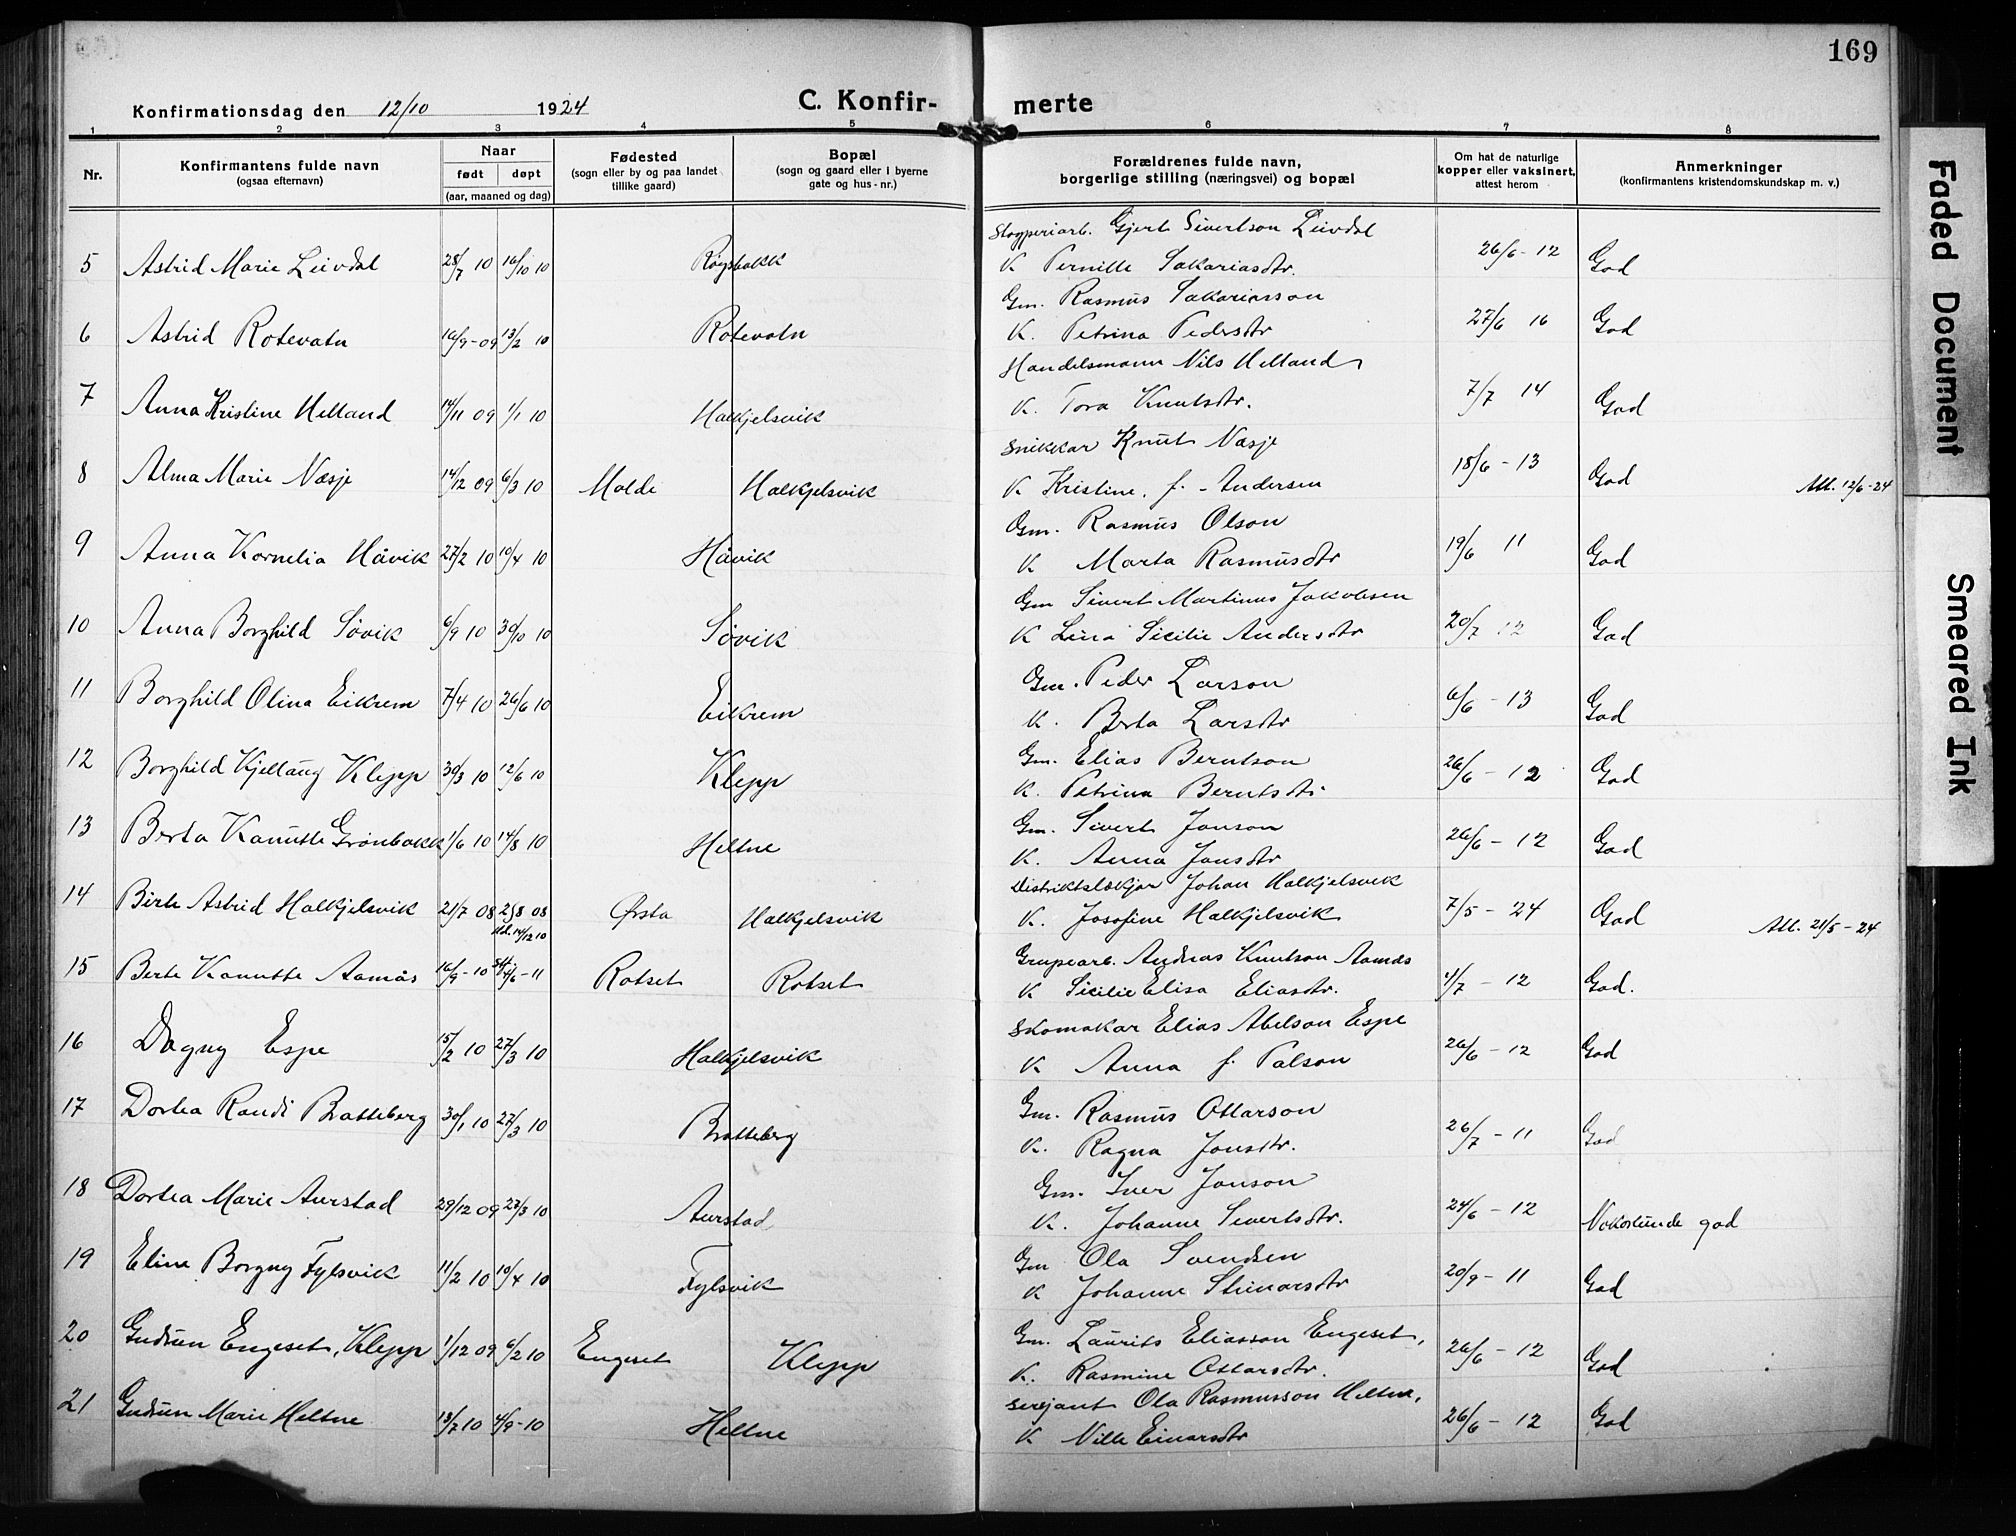 169
Konfirmationsdag den 12/10 1924 C. Konfir- merte
1 2 3 4 5 6 7 8
Nr.
Konfirmantens fulde navn
(ogsaa efternavn)
Naar
født døpt
(aar, maaned og dag)
Fødested
(sogn eller by og paa landet
tillike gaard)
Bopæl
(sogn og gaard eller i byerne
gate og hus-nr.)
Forældrenes fulde navn,
borgerlige stilling (næringsvei) og bopæl
Om hat de naturlige
kopper eller vaksinert,
attest herom
Anmerkninger
(konfirmantens kristendomskundskap m. v.)
Gjert Sivertson Leivdal
5 Astrid Marie Leivdal 28/7 10 16/10 10 K Pernille Sakariasdtr. 26/6-12 God
Gm. Rasmus Sakariasson
6 Astrid Rotevatn 16/9-09 13/2 10 Rotevatn K. Petrina Pedersdtr 27/6 16 God
Handelsmann Nils Helland
7 Anna Kristine Helland 14/11 09 1/1 10 Halkjelsvik K. Tora Knutsdtr. 7/7 14 God
Snikkar Knut Næsje
8 Alma Marie Næsje 14/12 09 6/3 10 Molde Halkjelsvik K Kristine, f. Andersen 18/6-13 God Att. 12/6-24
Gm. Rasmus Olson
9 Anna Kornelia Håvik 27/2 10 10/4 10 Håvik K Marta Rasmusdtr 19/6 11 God
Gm Sivert Martinus Jakobsen
10 Anna Borghild Søvik 6/9 10 30/10 10 Søvik K Lina Sicilie Andersdtr 20/7 12 God
Gm. Peder Larson
11 Borghild Olina Eikrem 7/4 10 26/6 10 Eikrem K. Brta Larsdtr 6/6-13 God
Gm. Elias Berntson
12 Borghild Kjellaug Klepp 30/3 10 12/6 10 Klepp K. Petrina Berntsdtr 26/6-12 God
Gm. Sivert Jonson
13 Berta Kanutte Grønbakk 1/6 10 14/8 10 Heltne K. Anna Jonsdtr 26/6-12 God
Distriktslækjar Johan Halkjelsvik
14 Birte Astrid Halkjelsvik 21/7 08 25/8 08 Ørsta Halkjelsvik K. Josefine Halkjelsvik 7/5-24 God Att. 21/5-24
14/12 10
Grupearb. Andreas Knutson Aamås
15 Berte Kanutte Aamås 16/9-10 4/6-11 Rotset Rotset K Sicilie Elisa Eliasdtr. 4/7-12 God.
Skomakar Elias Abelson Espe
16 Dagny Espe 15/2 10 27/3 10 Halkjelsvik K Anna f. Palson 26/6-12 God
Gm. Rasmus Ottarson
17 Dortea Randi Bratteberg 30/1 10 27/3 10 Bratteberg K. Ragna Jonsdtr. 26/7-11 God
Gm. Iver Jonson
18 Dortea Marie Aurstad 29/12 09 28/3 10 Aurstad K. Johanne Sivertsdtr. 24/6-12 Nokolunde god
Gm Ola Svendsen
19 Eline Borgny Fylsvik 11/2 10 10/4 10 Fylsvik K Johanne Steinarsdtr 20/9-11 God
Gm. Laurits Eliasson Engeset,
20 Gudrun Engeset, Klepp 1/12 09 6/2 10 Engeset Klepp K. Rasmine Ottarsdtr. 26/6-12 God
Serjant Ola Rasmusson Heltne,
21 Gudrun Marie Heltne 13/7 10 4/9-10 Heltne K Nille Einarsdtr 26/6-12 God
Faded Document
Smeared Ink